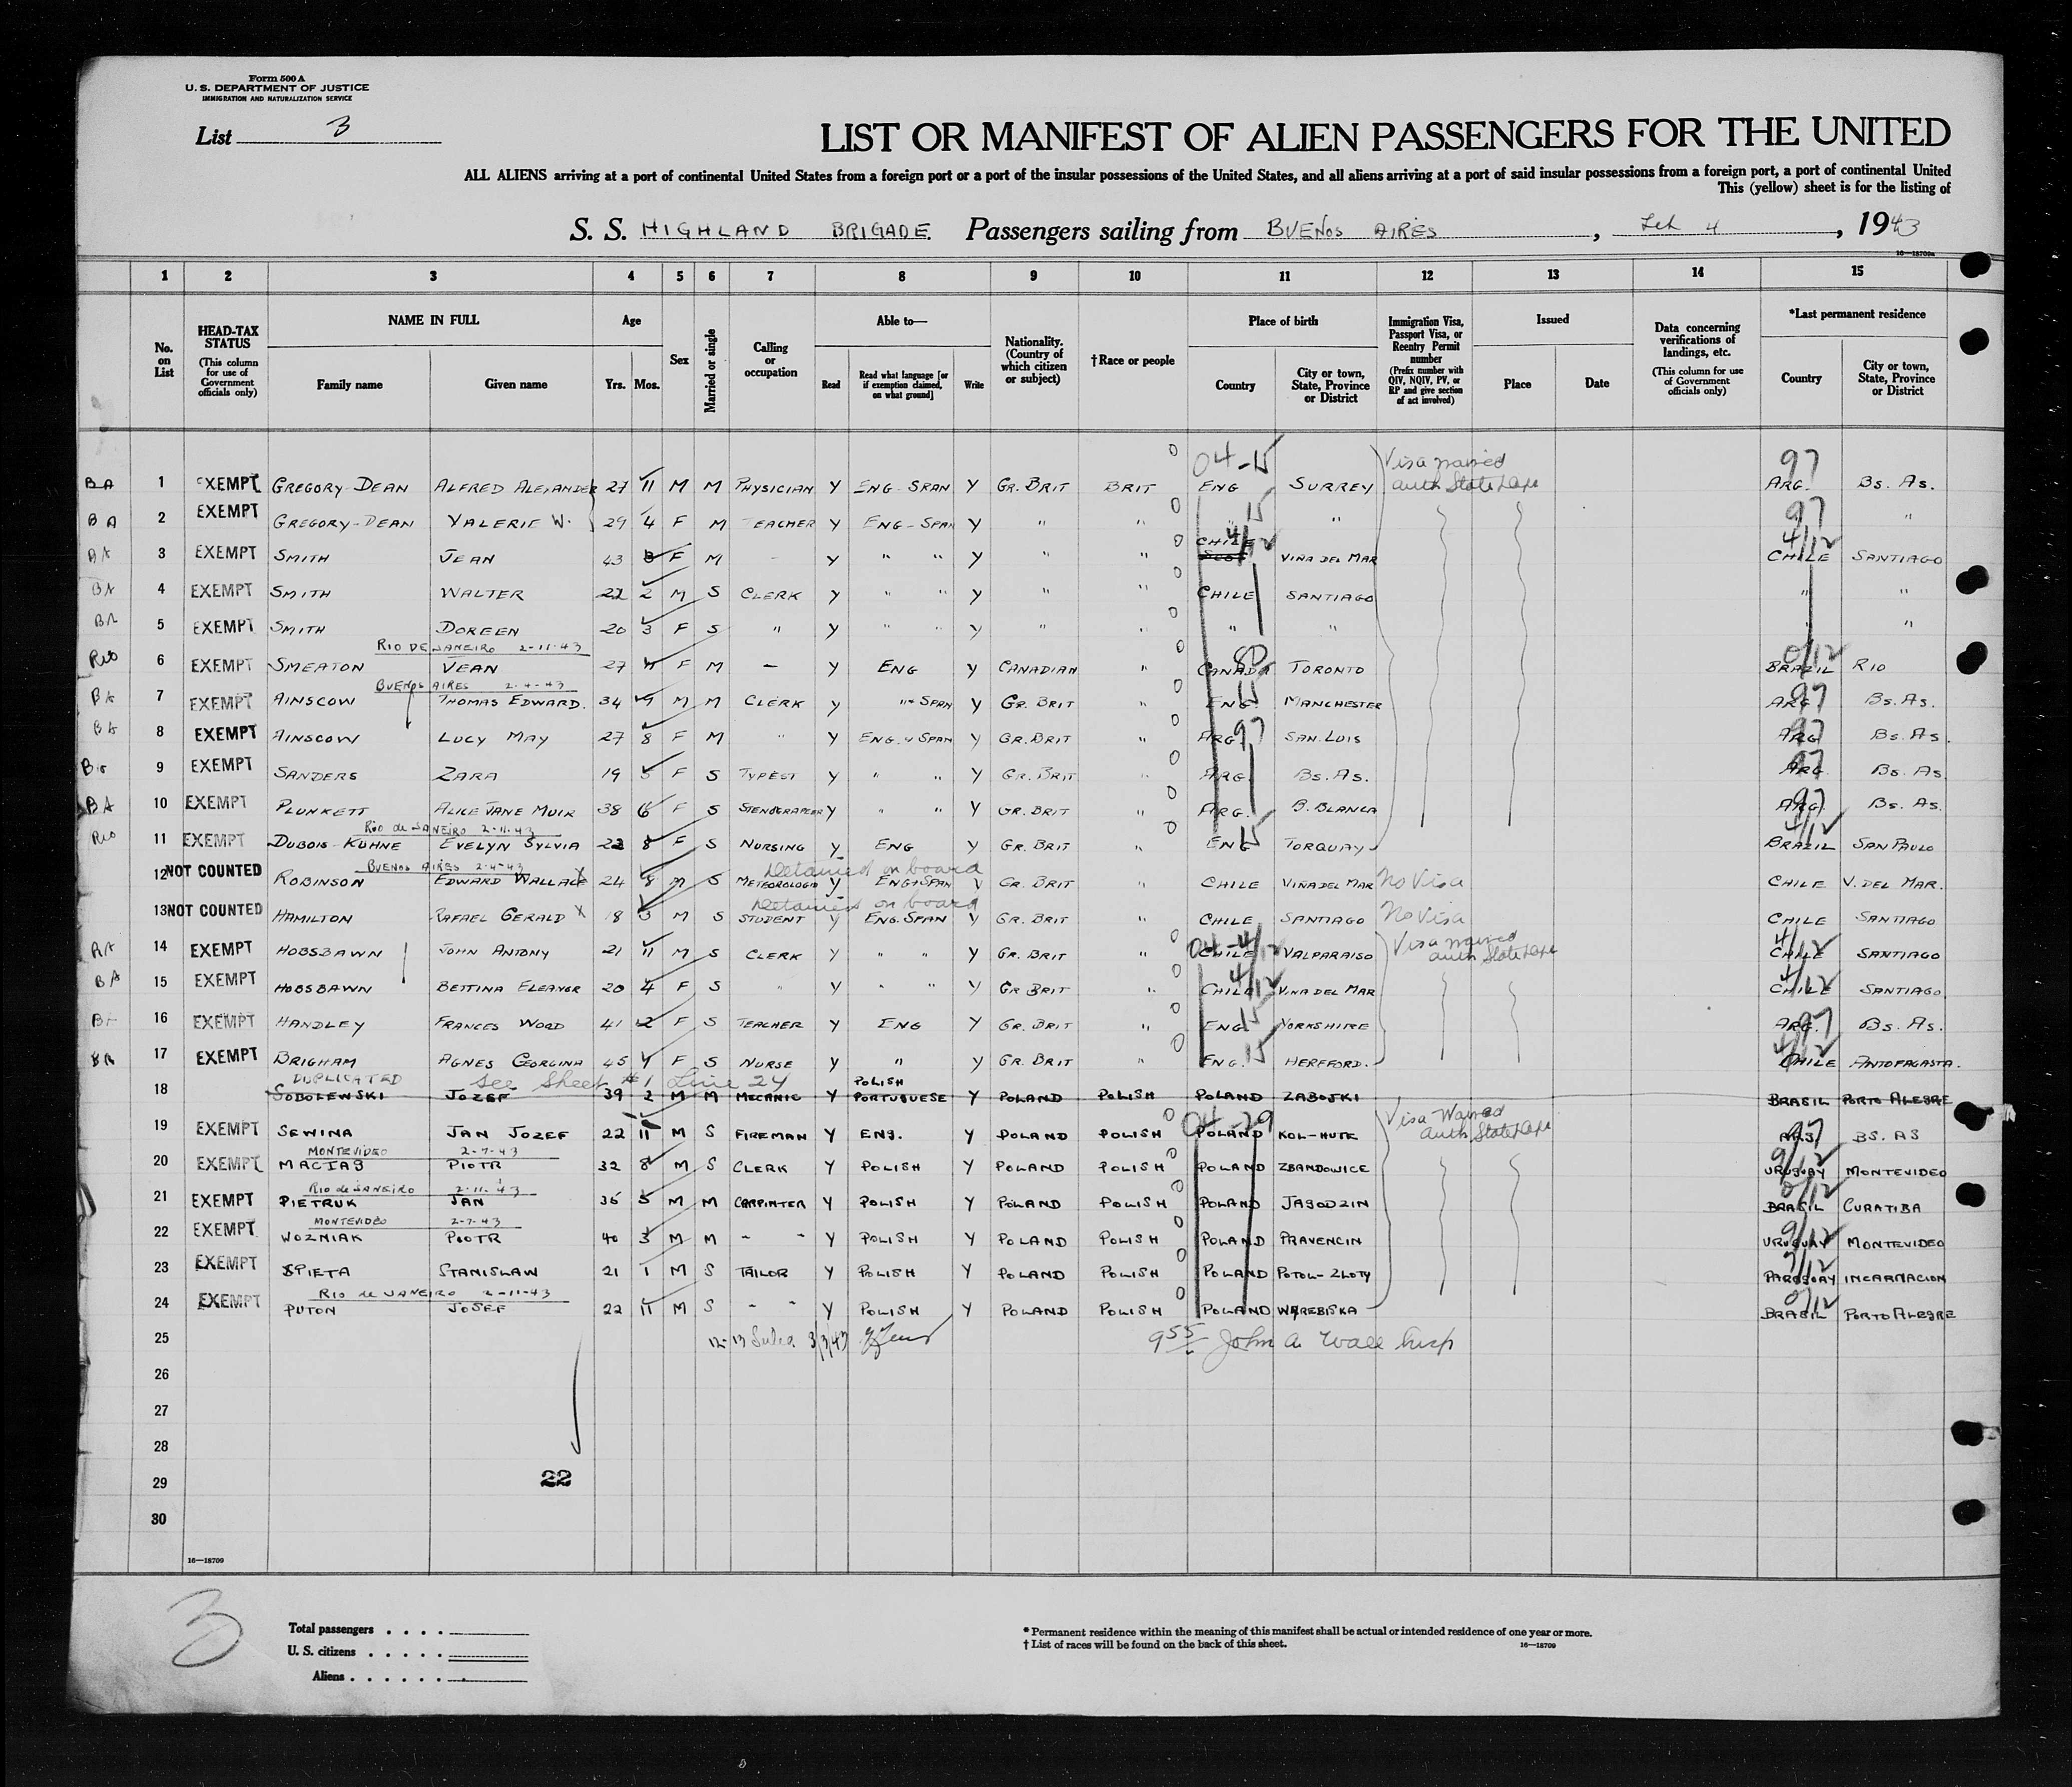 Form 500 A
U. S. DEPARTMENT OF JUSTICE
IMMIGRATION AND NATURALIZATION SERVICE
List 3
LIST OR MANIFEST OF ALIEN PASSENGERS FOR THE UNITED
ALL ALIENS arriving at a port of continental United States from a foreign port or a port of the insular possessions of the United States, and all aliens arriving at a port of said insular possessions from a foreign port, a port of continental United
This (yellow) sheet is for the listing of
S. S. HIGHLAND BRIGADE. Passengers sailing from BUENOS AIRES, Feb 4, 1943
16—18709a
1 2 3 4 5 6 7 8 9 10 11 12 13 14 15
No. on List
HEAD-TAX STATUS (This column for use of Government officials only)
NAME IN FULL Family name Given name
Age Yrs. Mos.
Sex
Married or single
Calling or occupation
Able to— Read Read what language [or if exemption claimed, on what ground] Write
Nationality. (Country of which citizen or subject)
†Race or people
Place of birth Country City or town, State, Province or District
Immigration Visa, Passport Visa, or Reentry Permit number (Prefix number with QIV, NQIV, PV, or RP and give section of act involved)
Issued Place Date
Data concerning verifications of landings, etc. (This column for use of Government officials only)
*Last permanent residence Country City or town, State, Province or District
04-15 Visa waived 97
BA 1 EXEMPT GREGORY-DEAN ALFRED ALEXANDER 27 11 M M PHYSICIAN Y ENG-SPAN Y GR. BRIT BRIT ENG SURREY auth State Dept ARG. BS. AS.
BA 2 EXEMPT GREGORY-DEAN VALERIE W. 29 4 F M TEACHER Y ENG-SPAN Y " " 15 " 97 "
BA 3 EXEMPT SMITH JEAN 43 8 F M - Y " " Y " " CHILE 4/12 VIÑA DEL MAR 4/12 CHILE SANTIAGO
BA 4 EXEMPT SMITH WALTER 22 2 M S CLERK Y " " Y " " CHILE SANTIAGO " "
BA 5 EXEMPT SMITH DOREEN 20 3 F S " Y " " Y " " " " " "
RIO DE JANEIRO 2-11-43
RIO 6 EXEMPT SMEATON JEAN 27 4 F M — Y ENG Y CANADIAN " CANADA TORONTO 0/12 BRAZIL RIO
BUENOS AIRES 2-4-43
BA 7 EXEMPT AINSCOW THOMAS EDWARD. 34 9 M M CLERK Y " SPAN Y GR. BRIT " ENG 15 MANCHESTER ARG 97 BS. AS.
BA 8 EXEMPT AINSCOW LUCY MAY 27 8 F M " Y ENG. & SPAN Y GR. BRIT " ARG 97 SAN. LUIS ARG 97 BS. AS.
BA 9 EXEMPT SANDERS ZARA 19 5 F S TYPEST Y " " Y GR. BRIT " ARG. BS. AS. ARG 97 BS. AS.
BA 10 EXEMPT PLUNKETT ALICE JANE MUIR 38 6 F S STENOGRAPHER Y " " Y GR. BRIT " ARG. B. BLANCA ARG. 97 BS. AS.
RIO de JANEIRO 2-11-43
RIO 11 EXEMPT DUBOIS-KUHNE EVELYN SYLVIA 22 8 F S NURSING Y ENG Y GR. BRIT " ENG 15 TORQUAY 4/12 BRAZIL SAN PAULO
BUENOS AIRES 2-4-43 Detained on board
12 NOT COUNTED ROBINSON EDWARD WALLACE X 24 8 M S METEOROLOGIST Y ENG & SPAN Y GR. BRIT " CHILE VIÑA DEL MAR No Visa CHILE V. DEL MAR.
Detained on board
13 NOT COUNTED HAMILTON RAFAEL GERALD X 18 3 M S STUDENT Y ENG. SPAN Y GR. BRIT " CHILE SANTIAGO No Visa CHILE SANTIAGO
BA 14 EXEMPT HOBSBAWN JOHN ANTONY 21 11 M S CLERK Y " " Y GR. BRIT " 04-4/12 CHILE VALPARAISO Visa waived auth State Dept 4/12 CHILE SANTIAGO
BA 15 EXEMPT HOBSBAWN BETTINA ELEANOR 20 4 F S " Y " " Y GR BRIT " 4/12 CHILE VINA DEL MAR 4/12 CHILE SANTIAGO
BA 16 EXEMPT HANDLEY FRANCES WORD 41 2 F S TEACHER Y ENG Y GR. BRIT " ENG 15 YORKSHIRE ARG. 97 BS. AS.
BA 17 EXEMPT BRIGHAM AGNES GEORGINA 45 4 F S NURSE Y " Y GR. BRIT " ENG. 15 HEREFORD. 4/12 CHILE ANTOFAGASTA.
DUPLICATED See Sheet #1 Line 24 POLISH
18 SOBOLEWSKI JOZEF 39 2 M M MECANIC Y PORTUGUESE Y POLAND POLISH POLAND ZABOJKI BRASIL PORTO ALEGRE
19 EXEMPT SEWINA JAN JOZEF 22 11 M S FIREMAN Y ENG. Y POLAND POLISH 04-29 POLAND KOL-HUTE Visa Waived auth State Dept ARG 97 BS. AS
MONTEVIDEO 2-7-43
20 EXEMPT MACIAG PIOTR 32 8 M S CLERK Y POLISH Y POLAND POLISH POLAND ZBANDOWICE 9/12 URUGUAY MONTEVIDEO
RIO de JANEIRO 2-11-43
21 EXEMPT PIETRUK JAN 35 5 M M CARPINTER Y POLISH Y POLAND POLISH POLAND JAGODZIN 0/12 BRASIL CURATIBA
MONTEVIDEO 2-7-43
22 EXEMPT WOZNIAK PIOTR 40 3 M M - - Y POLISH Y POLAND POLISH POLAND PRAVENCIN 9/12 URUGUAY MONTEVIDEO
23 EXEMPT SPIETA STANISLAW 21 1 M S TAILOR Y POLISH Y POLAND POLISH POLAND POTOL-ZLOTY 7/12 PARAGUAY INCARNACION
RIO de JANEIRO 2-11-43
24 EXEMPT PUTON JOSEF 22 11 M S - - Y POLISH Y POLAND POLISH POLAND WEREBISKA 0/12 BRASIL PORTO ALEGRE
25 12-13 3/3/43 9 55 John A. Wall Insp
26
27
28
29 22
30
16—18709
3
Total passengers
U. S. citizens
Aliens
* Permanent residence within the meaning of this manifest shall be actual or intended residence of one year or more.
† List of races will be found on the back of this sheet.
16—18709